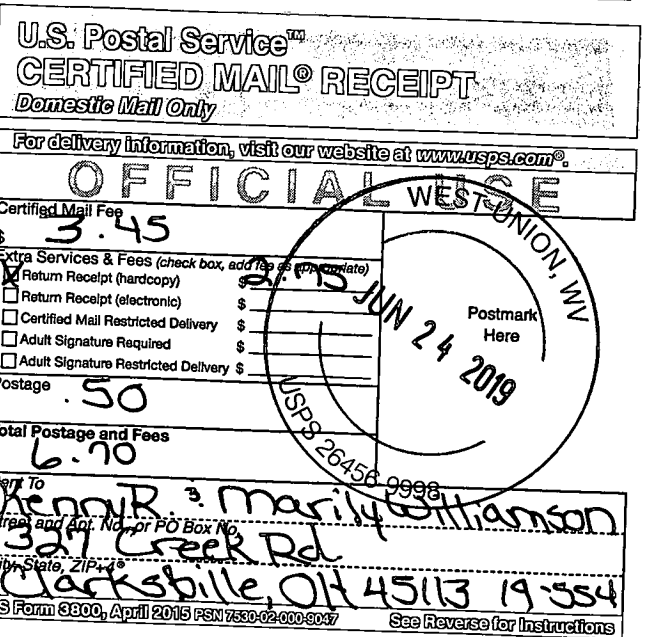 U.S. Postal Service™
CERTIFIED MAIL® RECEIPT
Domestic Mail Only
For delivery information, visit our website at www.usps.com®.
OFFICIAL USE
Certified Mail Fee
$ 3.45
Extra Services & Fees (check box, add fee as appropriate)
X Return Receipt (hardcopy) $ 2.75
Return Receipt (electronic) $
Certified Mail Restricted Delivery $
Adult Signature Required $
Adult Signature Restricted Delivery $
WEST UNION, WV
JUN 24 2019
USPS 26456 9998
Postmark
Here
Postage
.50
otal Postage and Fees
6.70
ent To
Kenny R. & Marily Williamson
treet and Apt. No., or PO Box No.
327 Creek Rd
ity, State, ZIP+4®
Clarksbille, OH 45113 19-554
S Form 3800, April 2015 PSN 7530-02-000-9047 See Reverse for Instructions